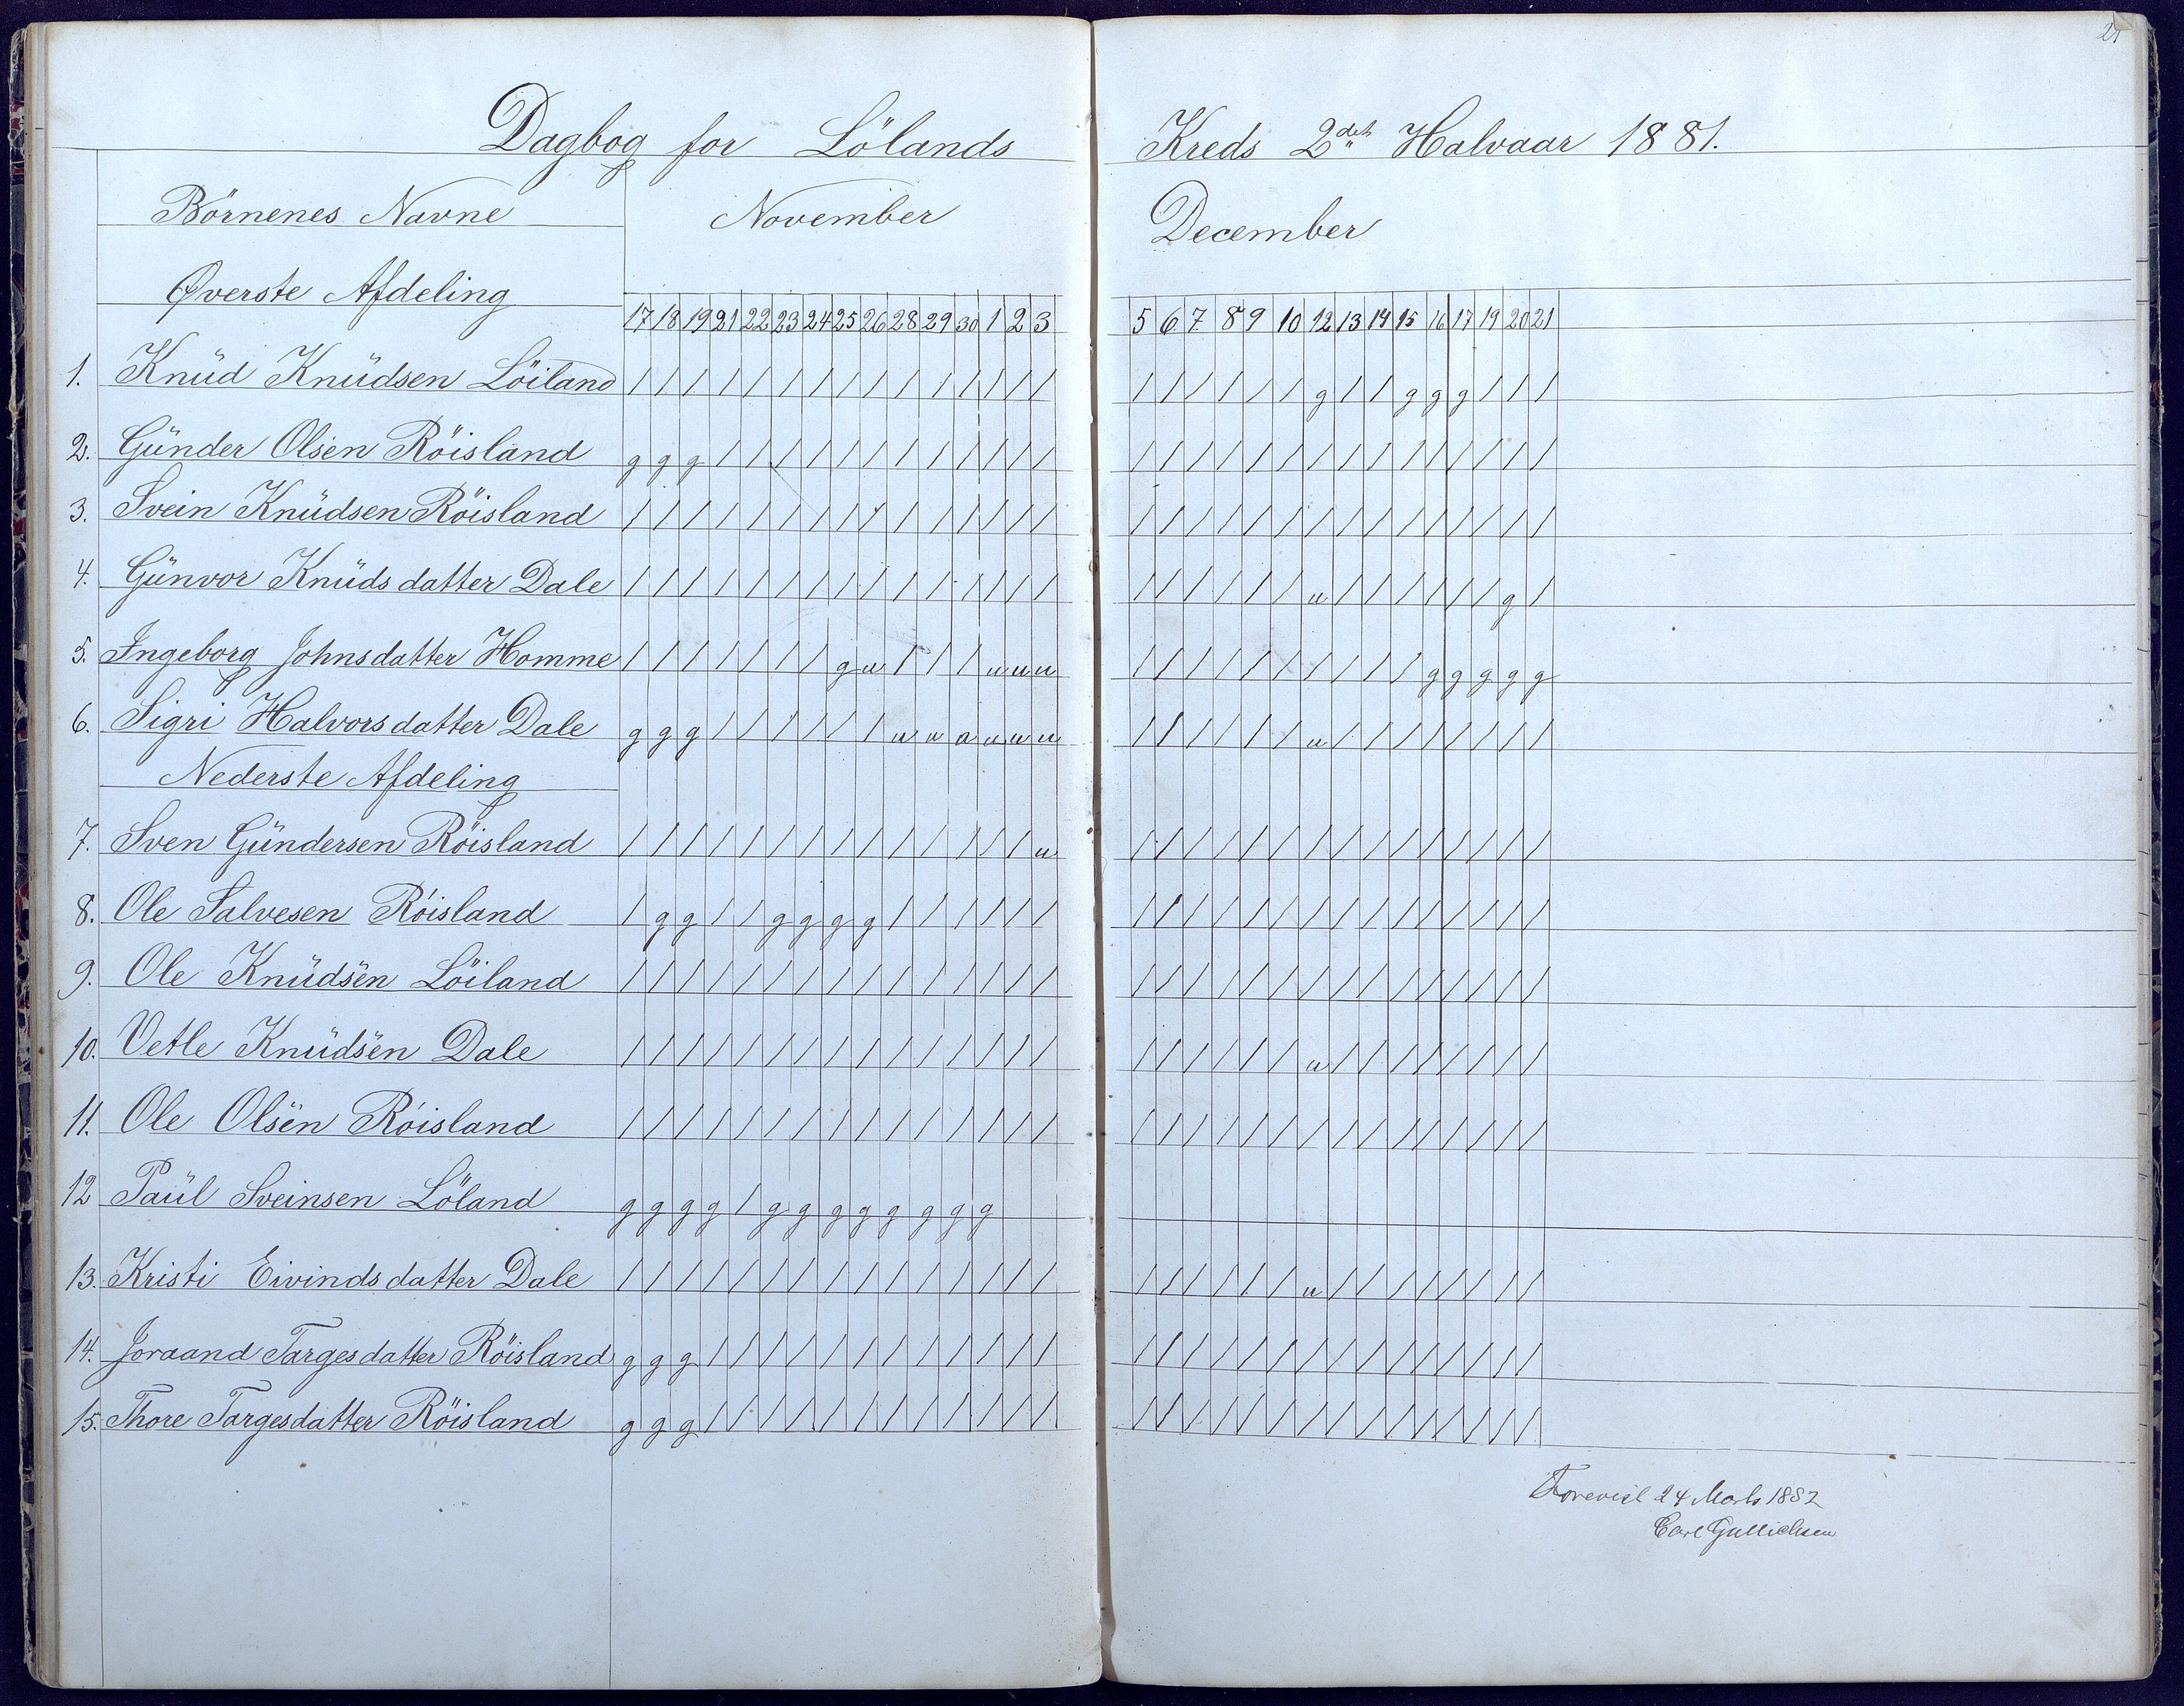 21
Dagbog for Lölands Kreds 2det Halvaar 1881.
Börnenes Navne November December
Øverste Afdeling
17 18 19 21 22 23 24 25 26 28 29 30 1 2 3 5 6 7 8 9 10 12 13 14 15 16 17 19 20 21
1. Knŭd Knŭdsen Löiland / / / / / / / / / / / / / / / / / / / / / g / / g g g / / /
2. Gŭnder Olsen Röisland g g g / / / / / / / / / / / / / / / / / / / / / / / / / / /
3. Svein Knŭdsen Röisland / / / / / / / / / / / / / / / / / / / / / / / / / / / / / /
4. Gŭnvor Knŭdsdatter Dale / / / / / / / / / / / / / / / / / / / / / u / / / / / / g /
5. Ingeborg Johnsdatter Homme / / / / / / / g u / / / u u u / / / / / / / / / / g g g g g
6. Sigri Halvorsdatter Dale g g g / / / / / / u u u u u u / / / / / / u / / / / / / / /
Nederste Afdeling
7. Sven Gŭndersen Röisland / / / / / / / / / / / / / / u / / / / / / / / / / / / / / /
8. Ole Salvesen Röisland / g g / / g g g g / / / / / / / / / / / / / / / / / / / / /
9. Ole Knŭdsen Löiland / / / / / / / / / / / / / / / / / / / / / / / / / / / / / /
10. Vetle Knŭdsen Dale / / / / / / / / / / / / / / / / / / / / / u / / / / / / / /
11. Ole Olsen Röisland / / / / / / / / / / / / / / / / / / / / / / / / / / / / / /
12 Paŭl Sveinsen Löland g g g g / g g g g g g g g
13. Kristi Eivindsdatter Dale / / / / / / / / / / / / / / / / / / / / / u / / / / / / / /
14. Joraand Targesdatter Röisland g g g / / / / / / / / / / / / / / / / / / / / / / / / / / /
15. Thore Targesdatter Röisland g g g / / / / / / / / / / / / / / / / / / / / / / / / / / /
Forevist 24 Marts 1882
Carl Gullichsen